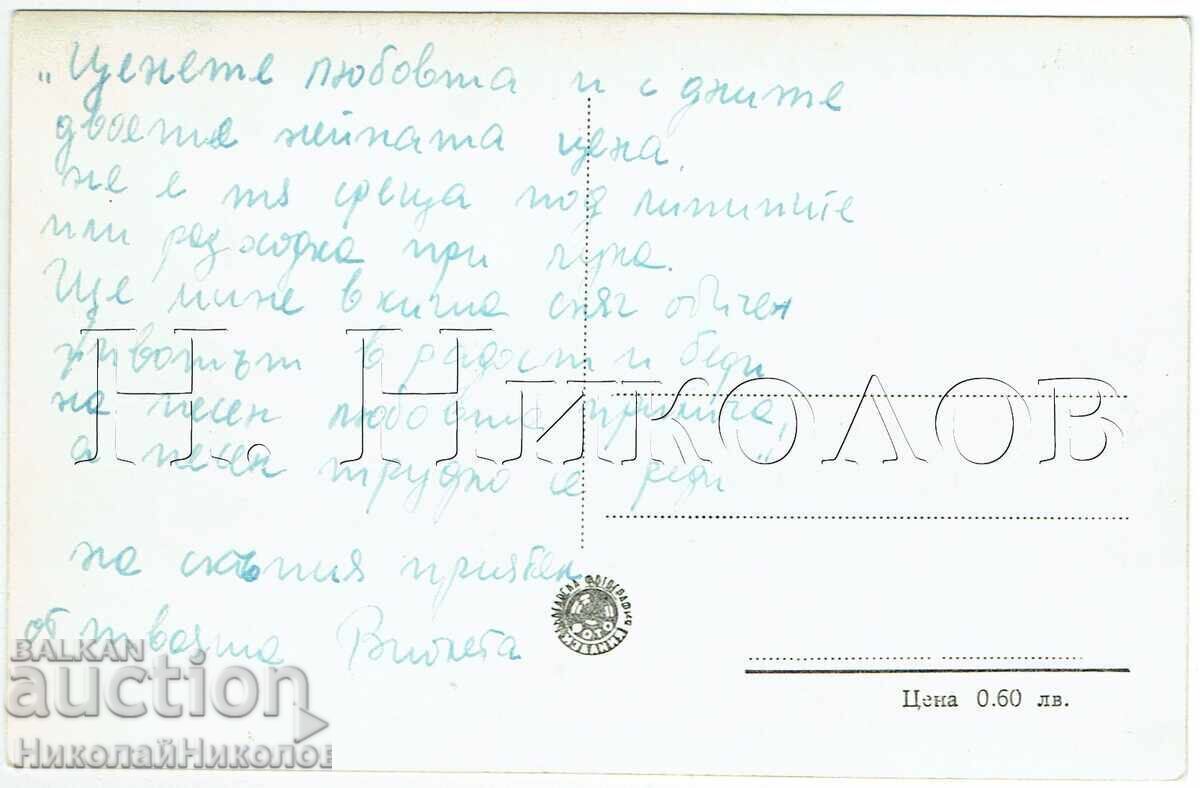 „Ценете любовта и с дните
двоете нейната цена,
не е тя среща под липите
или разходка при луна.
Ще мине в киша сняг обичен
животът в радост и беди
на песен любовта прилича,
а песен трудно се реди"
на скъпия приятел
от твоята Виолета
Н. Николов
БЪЛГАРСКА ФОТОГРАФИЯ
ФОТО
Цена 0.60 лв.
BALKAN
auction
НиколайНиколов